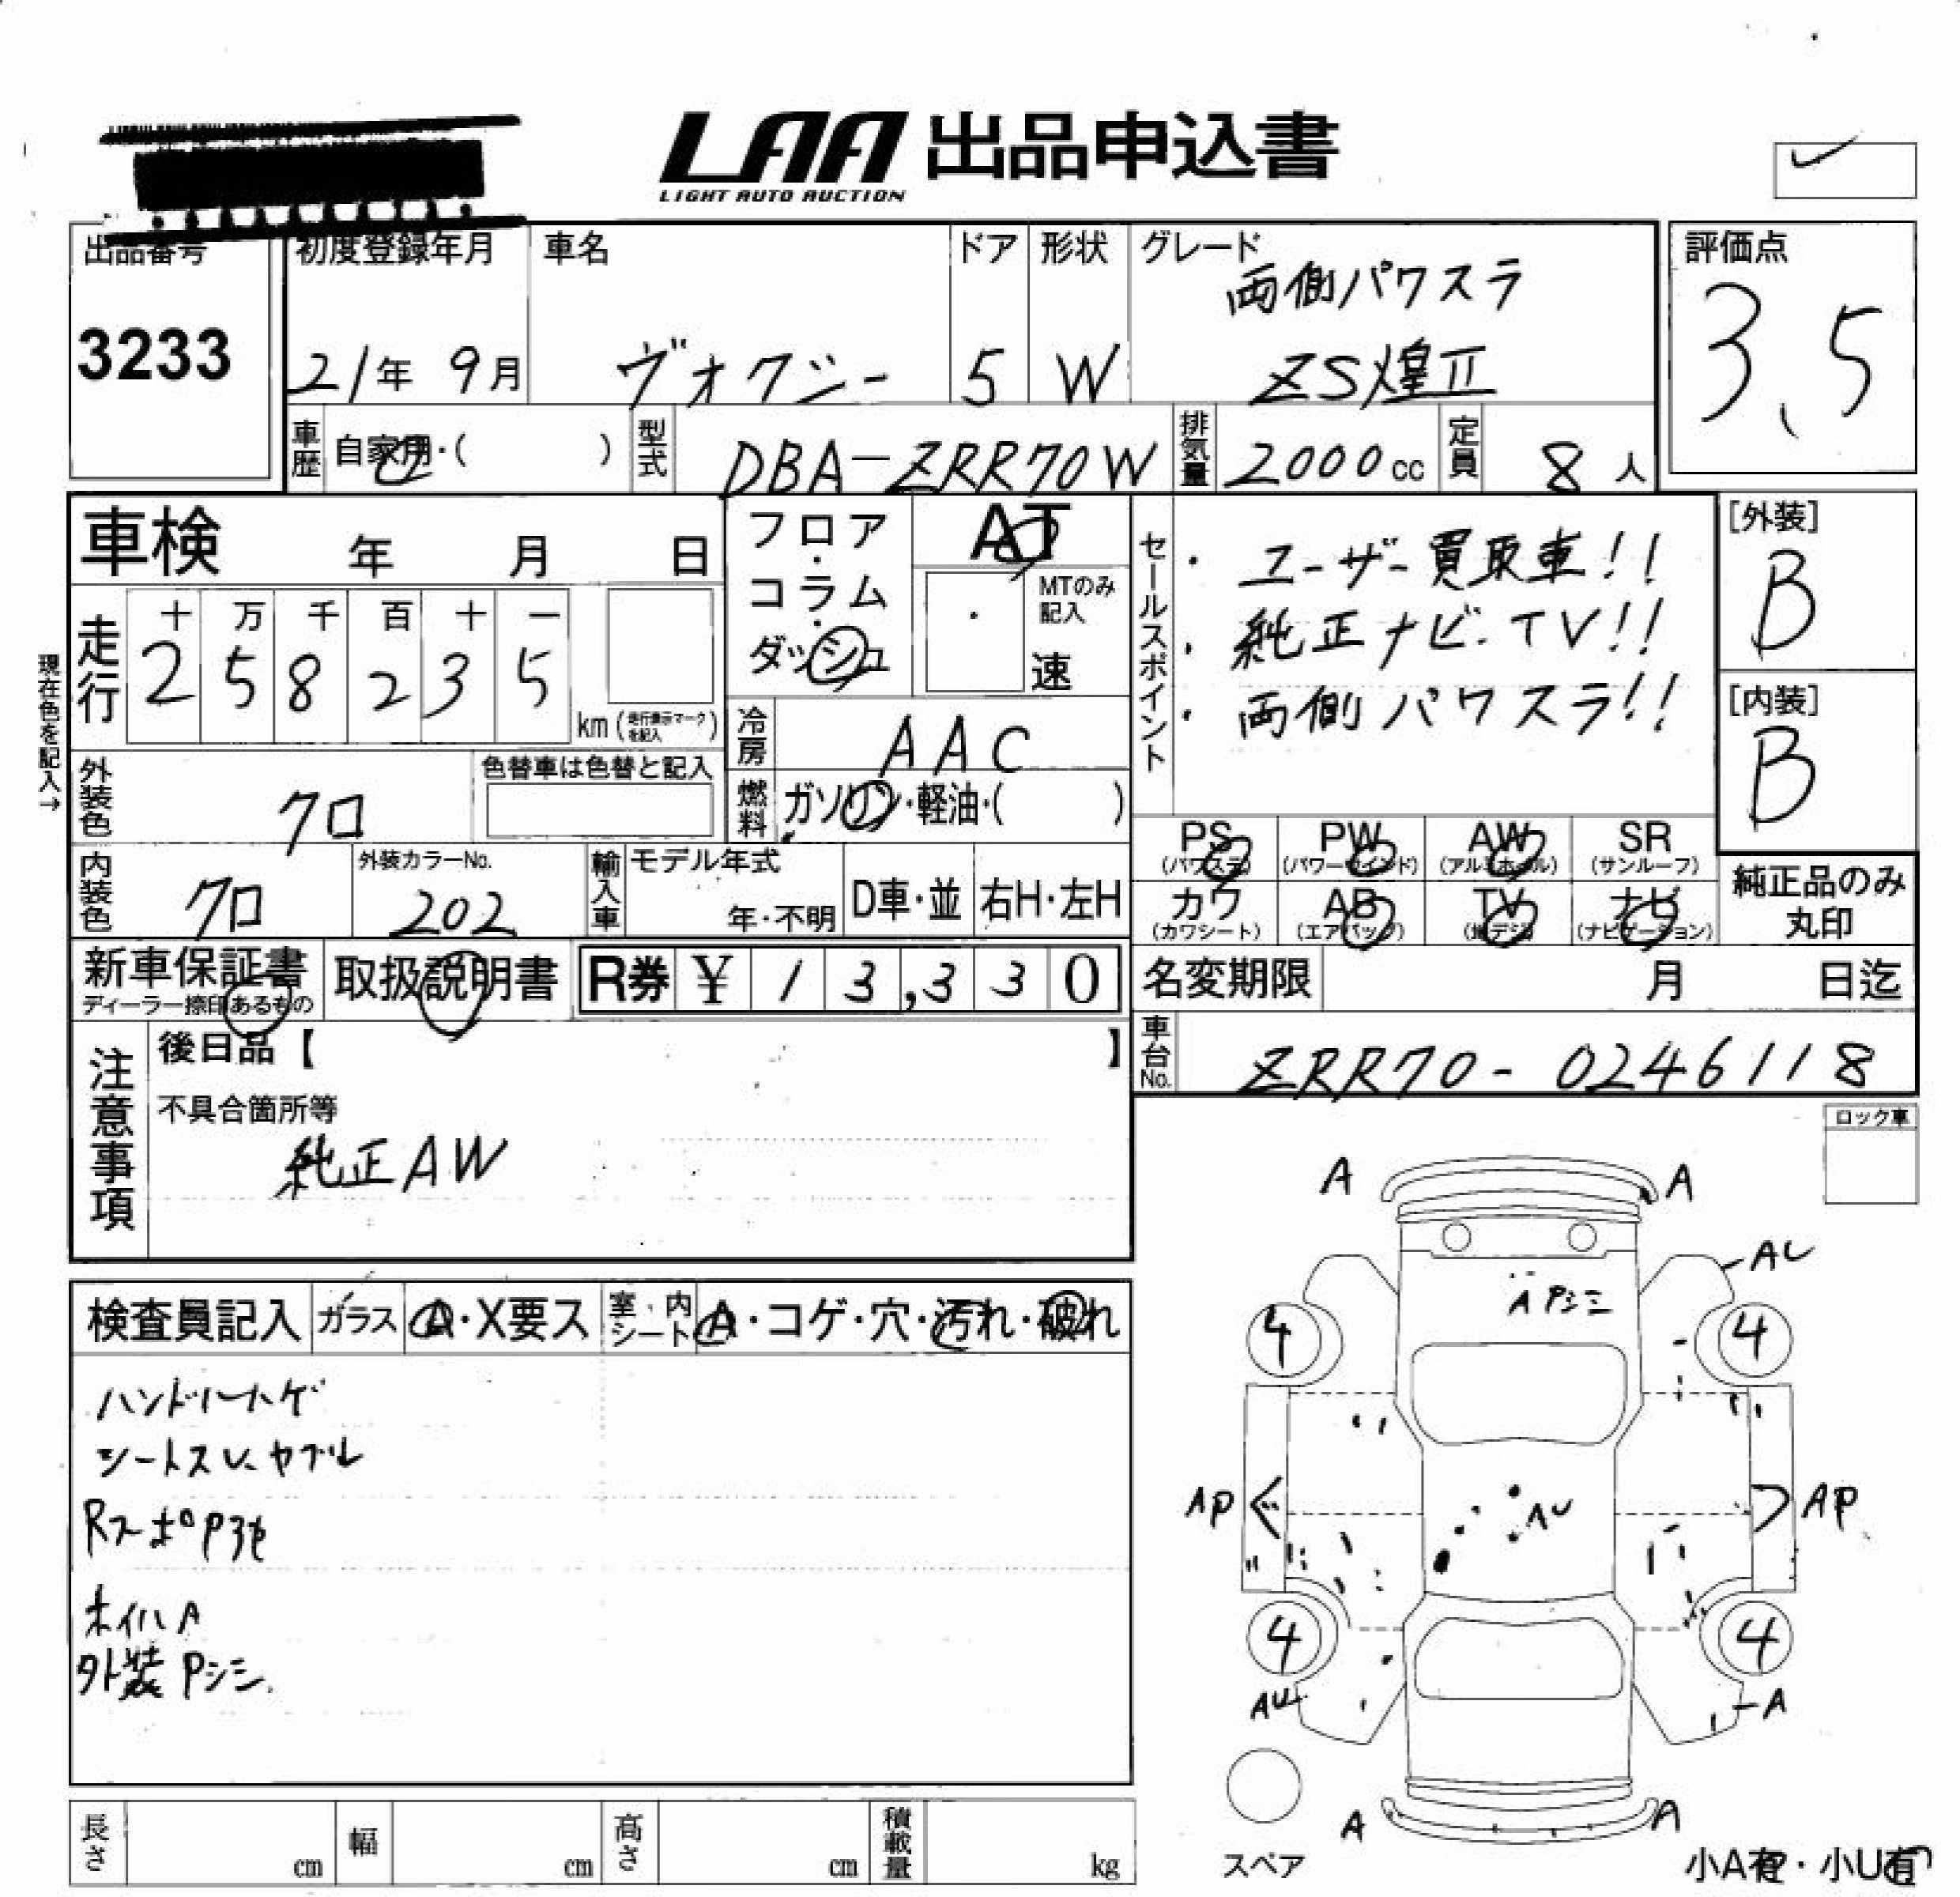 LAA 出品申込書
LIGHT AUTO AUCTION
出品番号 初度登録年月 車名 ドア 形状 グレード 評価点
両側パワスラ
3233 21年 9月 ヴォクシー 5 W ZS煌II 3.5
車歴 自家用・( ) 型式 DBA-ZRR70W 排気量 2000cc 定員 8人
車検 年 月 日
フロア・コラム・ダッシュ
AT
MTのみ記入
速
セールスポイント
・ユーザー買取車!!
・純正ナビ・TV!!
・両側パワスラ!!
[外装]
B
[内装]
B
現在色を記入→
走行 十 万 千 百 十 一
2 5 8 2 3 5 km(走行表示マークを記入)
冷房 AAC
燃料 ガソリン・軽油・( )
外装色 クロ 色替車は色替と記入
内装色 クロ 外装カラーNo. 202
輸入車 モデル年式 年・不明 D車・並 右H・左H
PS PW AW SR
(パワステ) (パワーウインド) (アルミホイール) (サンルーフ)
カワ AB TV ナビ
(カワシート) (エアバッグ) (地デジ) (ナビゲーション)
純正品のみ
丸印
新車保証書 取扱説明書 R券 ¥ 13,330
ディーラー捺印あるもの
名変期限 月 日迄
車台No. ZRR70-0246118
注意事項
後日品【 】
不具合箇所等
純正AW
ロック車
検査員記入 ガラス A・X要ス 室内・シート A・コゲ・穴・汚れ・破れ
ハンドルハゲ
シートスレ、ヤブレ
ホイルA
外装Pシミ
A A
AU
A Pシミ
4 4
AP AU AP
4 4
AU A
A A
スペア
小A有・小U有
長さ cm 幅 cm 高さ cm 積載量 kg